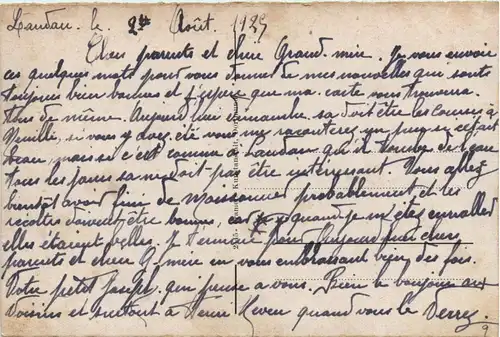 Landau. le 2 Août. 1925
Chers parents et chère Grand mère. Je vous envoie
ces quelques mots pour vous donner de mes nouvelles qui sont
toujours bien bonnes et j'espère que ma carte vous trouvera
tous de même. Aujourd'hui dimanche sa doit être les courses à
si vous y avez été vous me raconterez un peu si c'était
beau, mais si c'est comme à Landau qu'il tombe de l'eau
tous les jours sa ne doit pas être intéressant. Vous allez
bientôt avoir fini de moissonner probablement et les
récoltes doivent être bonnes, car quand je m'étes en allé
elles étaient belles. Je termine pour aujourd'hui chers
parents et chère G. mère en vous embrassant bien des fois.
Votre petit Joseph. qui pense a vous. Bien le bonjour aux
voisins et surtout à quand vous le verrez